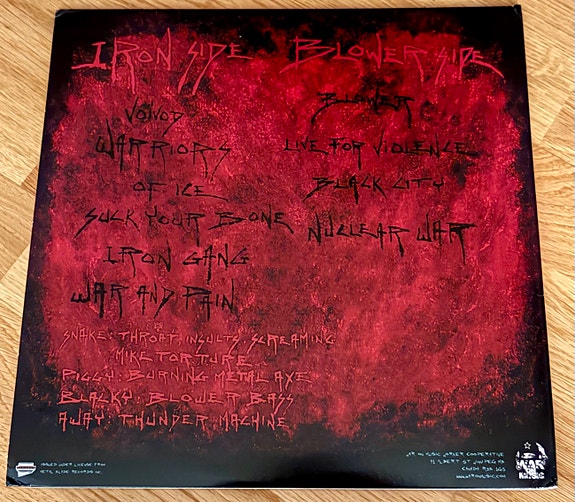 IRON SIDE
VOIVOD
WARRIORS
OF ICE
SUCK YOUR BONE
IRON GANG
WAR AND PAIN
BLOWER SIDE
BLOWER
LIVE FOR VIOLENCE
BLACK CITY
NUCLEAR WAR
SNAKE: THROAT, INSULTS, SCREAMING
MIKE TORTURE
PIGGY: BURNING METAL AXE
BLACKY: BLOWER BASS
AWAY: THUNDER MACHINE
ISSUED UNDER LICENSE FROM
METAL BLADE RECORDS INC.
WAR ON MUSIC WORKER COOPERATIVE
CANADA R3B 1G5
WAR
MUSIC